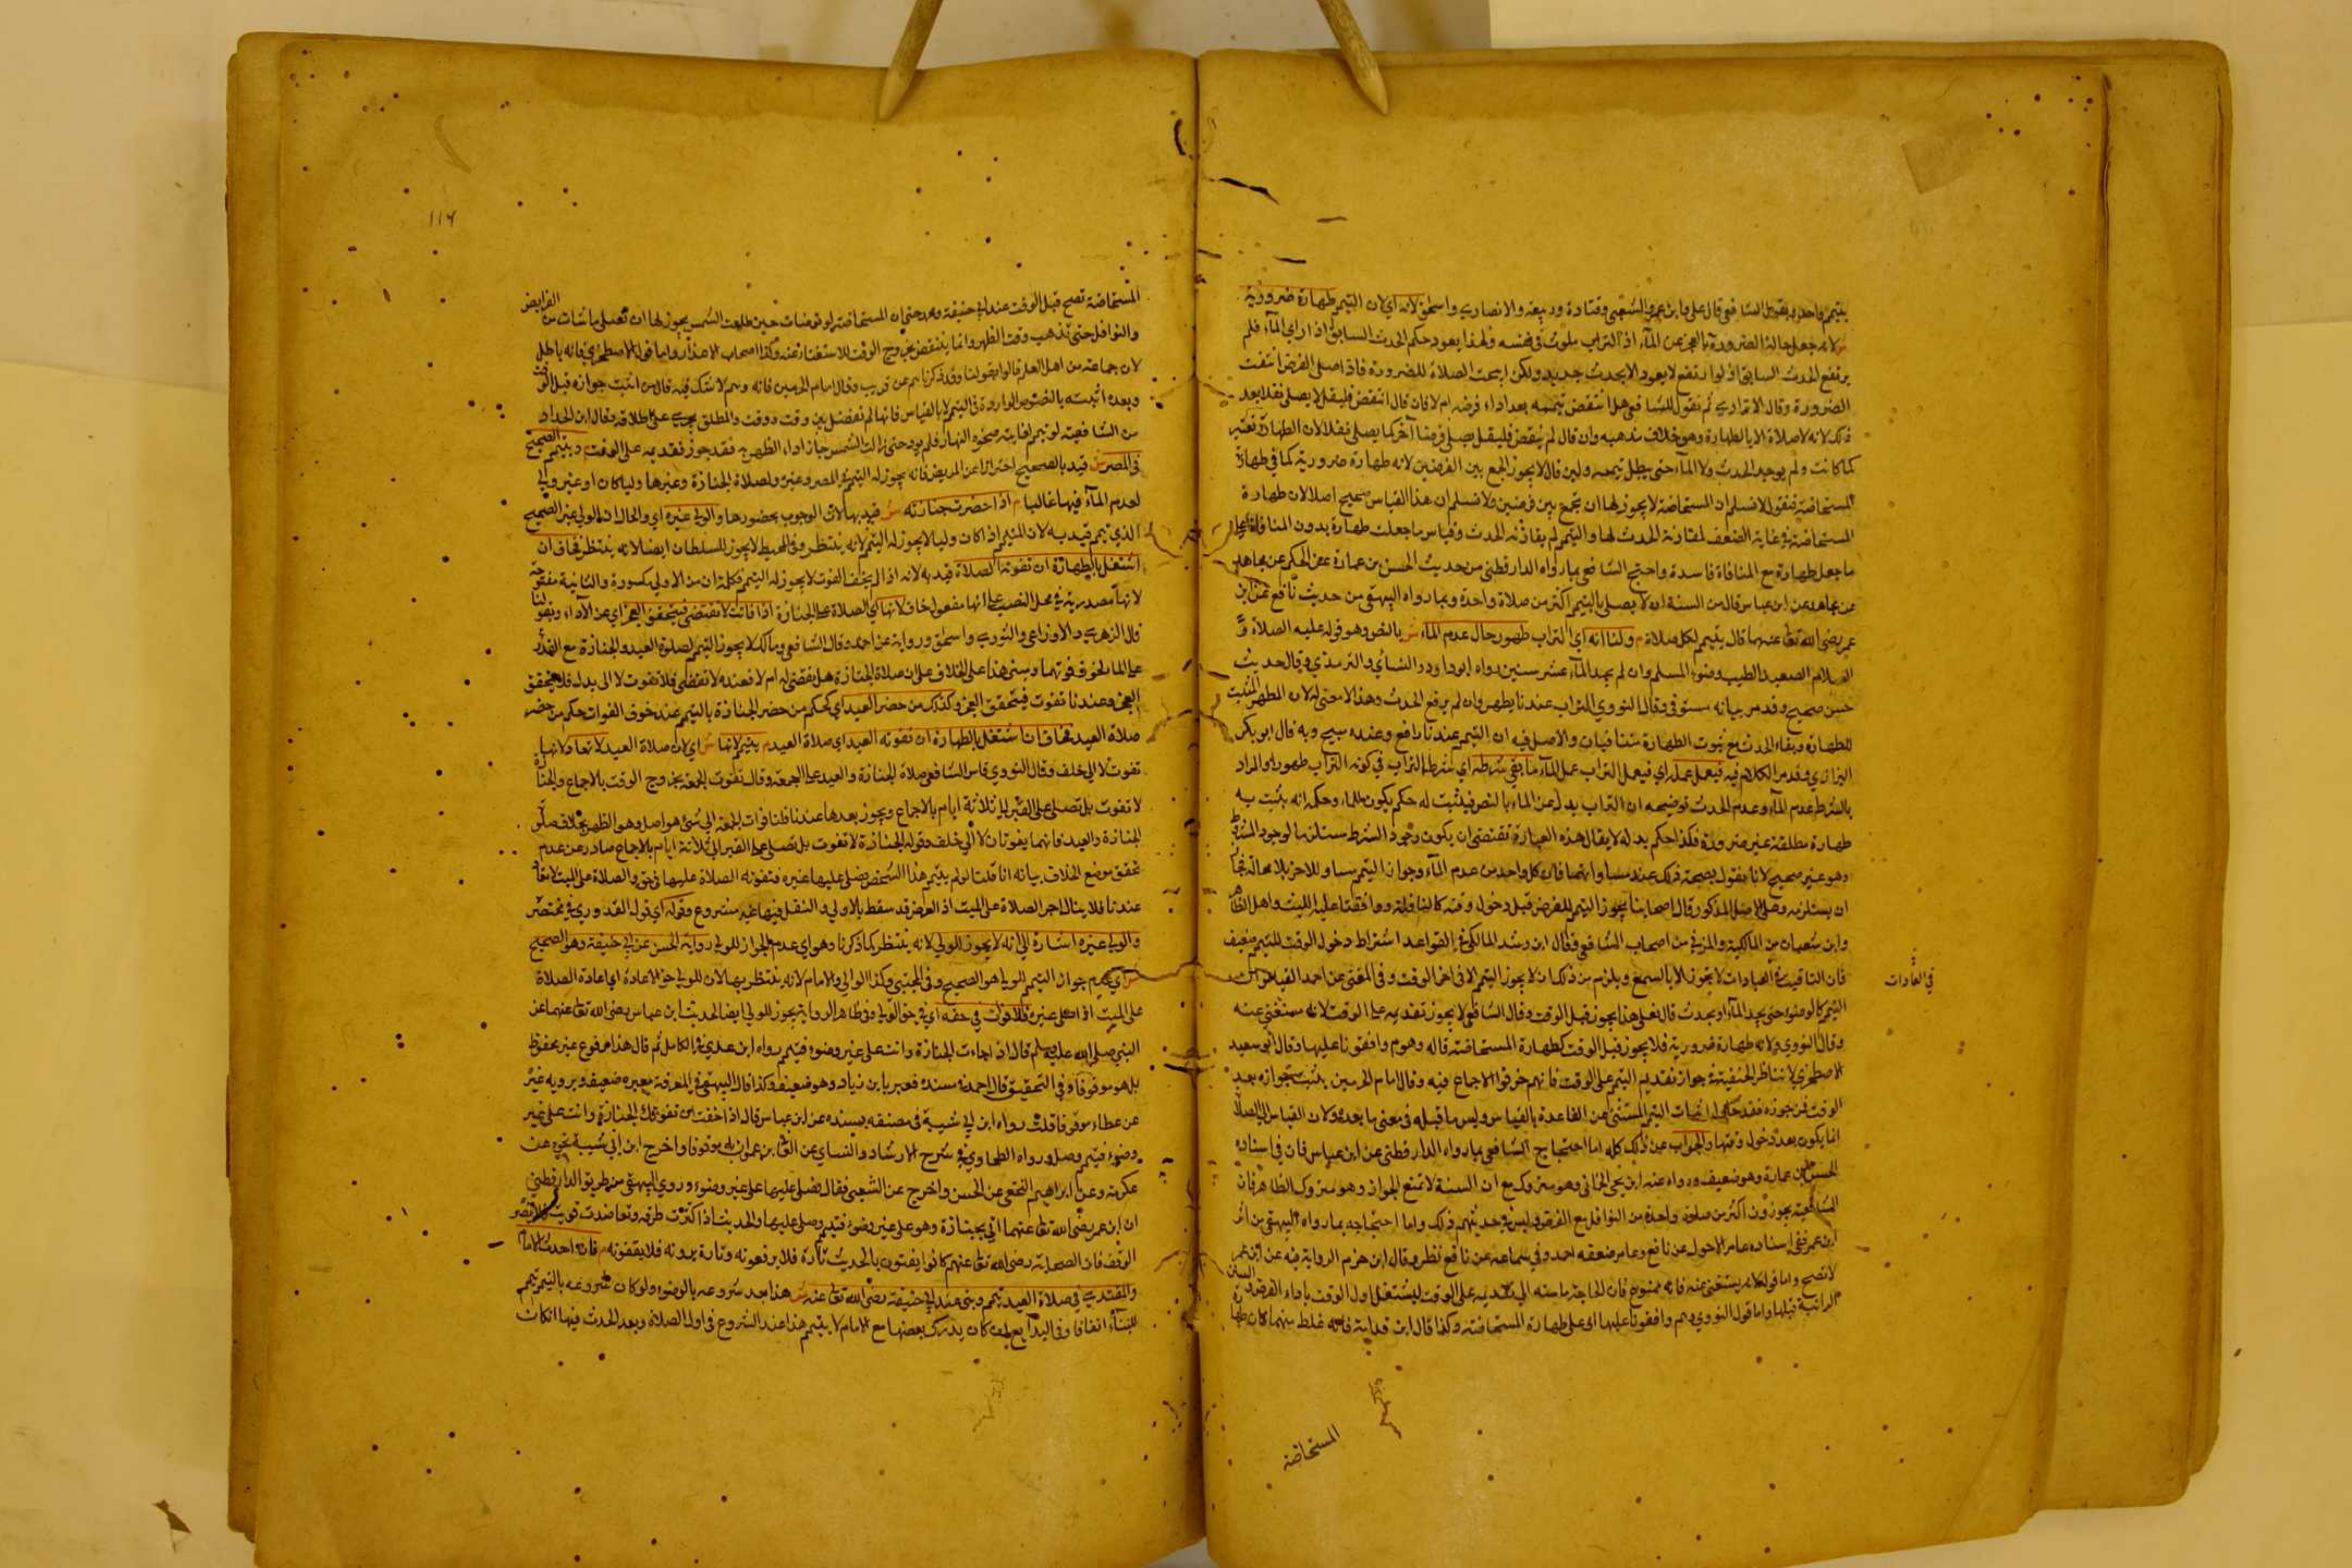 يتيم واحد وبقول الشافعي قال علي وابن عمر والشعبي وقتادة وربيعة والانصاري واسحق لانه اي لان التيمم طهارة ضرورية
ش لانه جعل حالة الضرورة بالعجز عن المآء اذ التراب ملوث في نفسه ولهذا يعود حكم الحدث السابق اذا راي المآء فلم
يرتفع الحدث السابق اذ لو ارتفع لا يعود الا بحدث جديد ولكن ابيحت الصلاة للضرورة فاذا صلى الفرض انتفت
الضرورة وقال الاترازي ثم نقول للشافعي هل انتقض تيممه بعد اداء فرضه ام لا فان قال انتقض فليقل لا يصلي نفلا بعد
ذلك لانه لا صلاة الا بالطهارة وهو خلاف مذهبه وان قال لم ينتقض فليقل يصلي فرضا آخر كما يصلي نفلا لان الطهارة
كما كانت ولم يوجد الحدث ولا المآء حتى يبطل تيممه ولئن قال لا يجوز الجمع بين الفرضين لانه طهارة ضرورية كما في طهارة
المستحاضة فنقول لا نسلم ان المستحاضة لا يجوز لها ان تجمع بين فرضين ولا نسلم ان هذا القياس صحيح اصلا لان طهارة
المستحاضة في غاية الضعف لمقارنة الحدث لها والتيمم لم يقارنه الحدث وقياس ما جعلت طهارة بدون المنافاة على
ما جعل طهارة مع المنافاة فاسدة واحتج الشافعي بما رواه الدارقطني من حديث الحسن بن عمارة عن الحكم عن مجاهد
عن ابن عباس قال من السنة ان لا يصلي بالتيمم اكثر من صلاة واحدة وبما رواه البيهقي من حديث نافع عن ابن
عمر رضي الله تعا عنهما قال يتيمم لكل صلاة م ولنا انه اي التراب طهور حال عدم المآء ش بالنص وهو قوله عليه الصلاة و
السلام الصعيد الطيب وضوء المسلم وان لم يجد المآء عشر سنين رواه ابو داود والنسائي والترمذي وقال حديث
حسن صحيح وقد مر بيانه مستوفى وقال النووي التراب عندنا يطهر وان لم يرفع الحدث وهذا لا معنى له لان المطهر المثبت
للطهارة وبقاء الحدث مع ثبوت الطهارة متنافيان والاصل فيه ان التيمم عندنا رافع وعنده مبيح وبه قال ابو بكر
الرازي وقد مر الكلام فيه فيعمل عمله اي فيعمل التراب عمل المآء ما بقي شرطه اي شرط التراب في كونه التراب طهورا والمراد
بالشرط عدم المآء وعدم الحدث توضيحه ان التراب بدل عن الماء بالنص فيثبت له حكم يكون للماء وحكمه انه يثبت به
طهارة مطلقة غير ضرورة فكذا حكم بدله لا يقال هذه العبارة تقتضي ان يكون وجود الشرط مستلزما لوجود المشروط
وهو غير صحيح لانا نقول بصحة ذلك عند مساواتهما فان كل واحد من عدم المآء وجواز التيمم مساو للاخر لا محالة فجاز
ان يستلزمه وعلى الاصل المذكور قال اصحابنا يجوز التيمم للفرض قبل دخول وقته كالنافلة ووافقنا عليه الليث واهل الظاهر
وابن شعبان من المالكية والمزني من اصحاب الشافعي وقال ابن رشد المالكي في القواعد اشتراط دخول الوقت للتيمم ضعيف
فان التاقيت في العبادات لا يجوز الا بالسمع ويلزم من ذلك ان لا يجوز التيمم الا في اخر الوقت وفي المغني عن احمد القياس ان
في العبادات
التيمم كالوضوء حتى يجد المآء او يحدث قال فعلى هذا يجوز قبل الوقت وقال الشافعي لا يجوز تقديمه على الوقت لانه مستغنى عنه
وقال النووي ولانه طهارة ضرورية فلا يجوز قبل الوقت كطهارة المستحاضة قاله وهم وافقونا عليها وقال ابو سعيد
الاصطخري لا نناظر الحنفية في جواز تقديم التيمم على الوقت فانهم خرقوا الاجماع فيه وقال امام الحرمين يثبت جوازه بعد
الوقت فمن جوزه فقد حاول اثبات التيمم المستثنى عن القاعدة بالقياس وليس ما قبله في معنى ما بعده ولان القياس ان الصلاة
انما يكون بعد دخول وقتها والجواب عن ذلك كله اما احتجاج الشافعي بما رواه الدارقطني عن ابن عباس فان في اسناده
الحسن بن عمارة وهو ضعيف ورواه عنه ابن يحيى الحماني وهو متروك مع ان السنة لا تمنع الجواز وهو متروك الظاهر فان
الشافعية يجوزون اكثر من صلاة واحدة من النوافل مع الفرض وليس في حديثهم ذلك واما احتجاجه بما رواه البيهقي من اثر
ابن عمر ففي اسناده عامر الاحول عن نافع وعامر ضعفه احمد وفي سماعه عن نافع نظر وقال ابن حزم الرواية فيه عن ابن عمر
لا تصح واما قوله لانه يستغنى عنه فانه ممنوع فان الحاجة ماسة الى تقديمه على الوقت ليشتغل اول الوقت باداء الفرض والسنن
الراتبة قبلها واما قول النووي وهم وافقونا عليها اي على طهارة المستحاضة وكذا قال ابن قدامة فانه غلط منهما فان طهارة
المستحاضة
١١٦
المستحاضة تصح قبل الوقت عند ابي حنيفة ومحمد حتى ان المستحاضة لو توضأت حين طلعت الشمس يجوز لها ان تصلي ما شأت من الفرايض
والنوافل حتى يذهب وقت الظهر وانما ينتقض بخروج الوقت للاستغناء عنه وكذا اصحاب الاعذار واما قول الاصطخري فانه باطل
لان جماعة من اهل العلم قالوا بقولنا وقد ذكرناهم عن قريب وقال امام الحرمين فانه وهم لا شك فيه قال من اثبت جوازه قبل الوقت
وبعده اثبته بالنصوص الواردة في التيمم لا بالقياس فانها لم تفصل بين وقت ووقت والمطلق يجري على اطلاقه وقال ابن الحداد
من الشافعية لو تيمم لفايتة ضحوة النهار فلم يؤد حتى زالت الشمس جاز اداء الظهر به فقد جوز تقديمه على الوقت م ويتيمم الصحيح
في المصر ش قيد بالصحيح احترازا عن المريض فانه يجوز له التيمم في المصر وغيره ولصلاة الجنازة وغيرها وليا كان او غير ولي
لعدم المآء فيها غالبا م اذا حضرت جنازته ش قيد بها لان الوجوب بحضورها والولي غيره اي والحال ان الولي غير الصحيح
الذي تيمم قيد به لان المتيمم اذا كان وليا لا يجوز له التيمم لانه ينتظر وفي المحيط لا يجوز للسلطان ايضا لانه ينتظر فخاف ان
اشتغل بالطهارة ان تفوته الصلاة قيد به لانه اذا لم يخف الفوت لا يجوز له التيمم فكلمة ان من الاولى مكسورة والثانية مفتوحة
لانها مصدرية في محل النصب على انها مفعول خاف لانها اي الصلاة على الجنازة اذا فاتت لا تقضى فيتحقق العجز اي عن الاداء وبقولنا
قال الزهري والاوزاعي والثوري واسحق ورواية عن احمد وقال الشافعي ومالك لا يجوز التيمم لصلوة العيد والجنازة مع القدرة
على الماء لخوف فوتهما ومبنى هذا على الخلاف على ان صلاة الجنازة هل تقضى له ام لا فعنده لا تقضى فلا تفوت لا الى بدل فلا يتحقق
العجز وعندنا تفوت فيتحقق العجز وكذلك من حضر العيد اي كحكم من حضر الجنازة بالتيمم عند خوف الفوات حكم من حضر
صلاة العيد فخاف ان اشتغل بالطهارة ان تفوته العيد اي صلاة العيد م يتيمم لانها ش اي لان صلاة العيد لا تعاد لانها
تفوت لا الى خلف وقال النووي قاس الشافعي صلاة الجنازة والعيد على الجمعة وقال تفوت الجمعة بخروج الوقت بالاجماع والجنازة
لا تفوت بل تصلى على القبر الى ثلاثة ايام بالاجماع ويجوز بعدها عندنا قلنا فوات الجمعة الى شيء هو اصل وهو الظهر بخلاف صلاة
الجنازة والعيد فانهما يفوتان لا الى خلف وقوله الجنازة لا تفوت بل تصلى على القبر الى ثلاثة ايام بالاجماع صادر عن عدم
تحقق موضع الخلاف بيانه انا قلنا لو لم يتيمم هذا الشخص يصلي عليها غيره فتفوته الصلاة عليها في حق والصلاة على الميت لا تعاد
عندنا فلا ينال اجر الصلاة على الميت اذ الفرض قد سقط بالاولى والتنفل فيها غير مشروع وقوله اي قول القدوري في مختصره
والولي غيره اشارة الى انه لا يجوز للولي لانه ينتظر كما ذكرنا وهو اي عدم الجواز للولي رواية الحسن عن ابي حنيفة وهو الصحيح
ش اي عدم جواز التيمم للولي هو الصحيح وفي المجتبى وكذا الوالي والامام لانه ينتظر بها لان للولي حق الاعادة اي اعادة الصلاة
على الميت اذا صلى غيره فلا فوات في حقه اي في حق الولي وفي ظاهر الرواية يجوز للولي ايضا لحديث ابن عباس رضي الله تعا عنهما عن
النبي صلى الله عليه وسلم قال اذا جاءت الجنازة وانت على غير وضوء فتيمم رواه ابن عدي في الكامل ثم قال هذا مرفوع غير محفوظ
بل هو موقوفا وفي التحقيق قال احمد في مسنده مغيرة بن زياد وهو ضعيف وكذا قال البيهقي في المعرفة مغيرة ضعيف ويرويه غيره
عن عطاء موقوفا قلت رواه ابن ابي شيبة في مصنفه بسنده عن ابن عباس قال اذا خفت ان تفوتك الجنازة وانت على غير
وضوء فتيمم وصل ورواه الطحاوي في شرح الاثار والنسائي عن المعافى بن عمران به موقوفا واخرج ابن ابي شيبة نحوه عن
عكرمة وعن ابراهيم النخعي عن الحسن واخرج عن الشعبي فقال يصلي عليها على غير وضوء وروى البيهقي من طريق الدارقطني
ان ابن عمر رضي الله تعا عنهما اتي بجنازة وهو على غير وضوء فتيمم وصلى عليها والحديث اذا كثرت طرقه وتعاضدت قويت فلا يضره
الوقف فان الصحابة رضي الله تعا عنهم كانوا يفتون بالحديث تارة فلا يرفعونه وتارة يروونه فلا يقفونه م فان احدث الامام
والمقتدي في صلاة العيد تيمم وبنى عند ابي حنيفة رضي الله تعا عنه ش هذا بعد شروعه بالوضوء ولو كان شروعه بالتيمم تيمم
للبنآء اتفاقا وفي البدايع ان كان يدرك بعضها مع الامام لا يتيمم هذا عند الشروع في اول الصلاة وبعد الحدث فيها ان كان